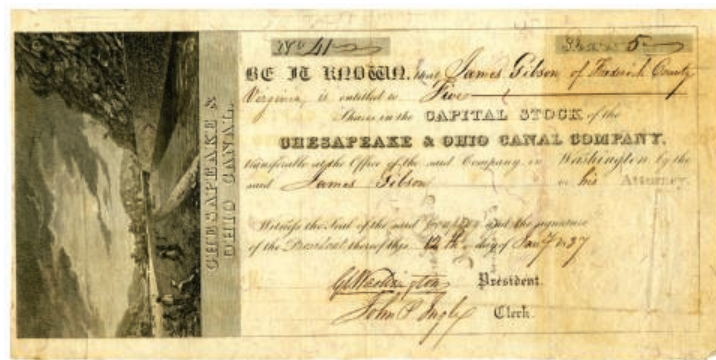 CHESAPEAKE &
OHIO CANAL.
No. 41 Shares 5
BE IT KNOWN, that James Gibson of Frederick County
Virginia, is entitled to Five
Shares in the CAPITAL STOCK of the
CHESAPEAKE & OHIO CANAL COMPANY,
transferable at the Office of the said Company in Washington by the
said James Gibson or his Attorney.
Witness the Seal of the said Company and the signature
of the President thereof this 12th day of Jany 1837
President.
John P Ingle Clerk.